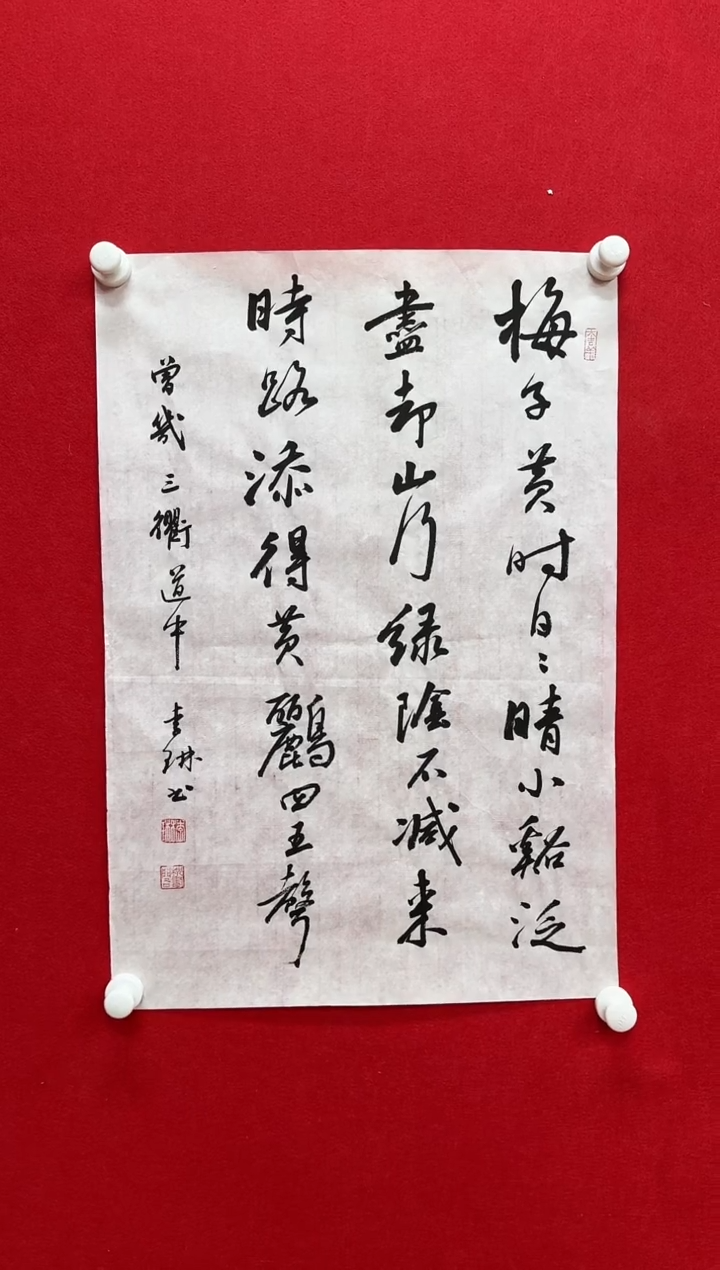 梅子黄时日〻晴小谿泛
盡却山行緑陰不減来
時路添得黄鸝四五聲
曾幾三衢道中
李琳书